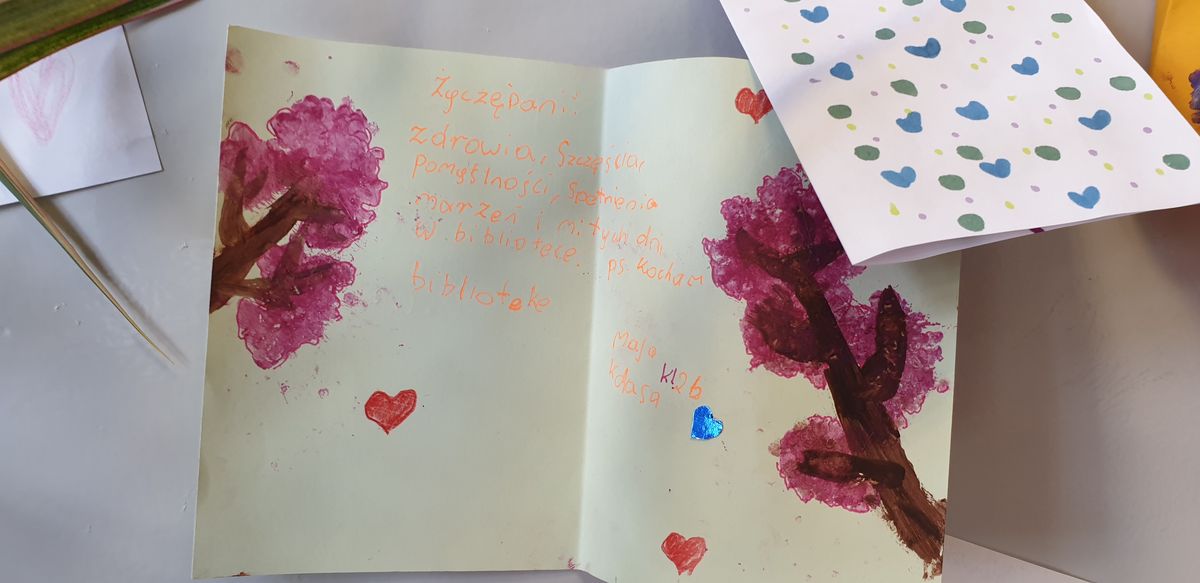 Życzę pani:
zdrowia, szczęścia,
pomyślności, spełnienia
marzeń i miłych dni
w bibliotece... ps. kocham
bibliotekę
Maja
kl2b
kdasa